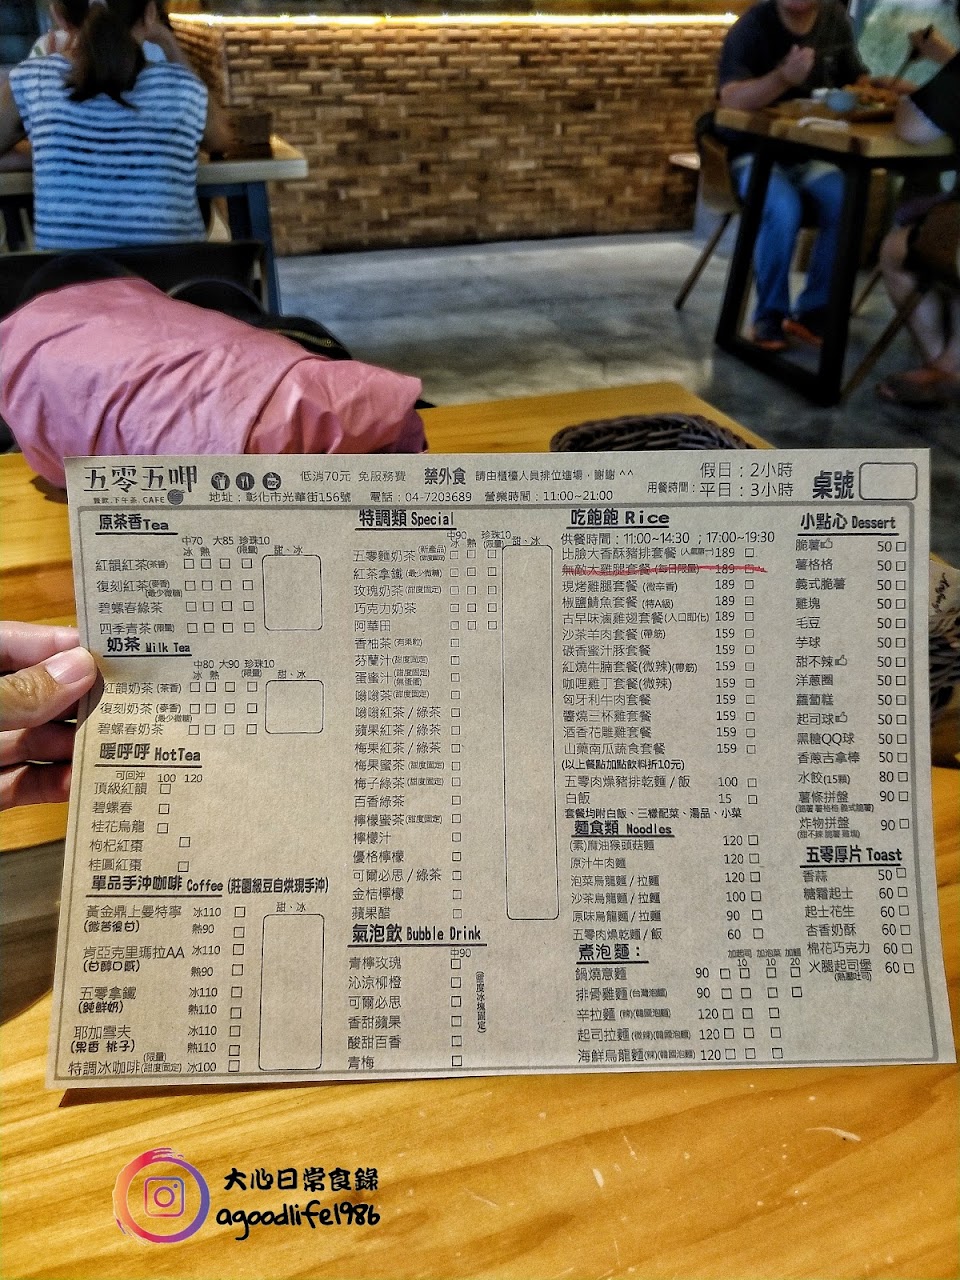 五零五呷
餐飲.下午茶.CAFE
低消70元 免服務費 禁外食 請由櫃檯人員排位進場，謝謝^^
地址：彰化市光華街156號 電話：04-7203689 營業時間：11:00~21:00
用餐時間：
假日：2小時
平日：3小時
桌號
原茶香Tea
中70 大85 珍珠10
冰 熱 (限量) 甜、冰
紅韻紅茶(茶香)
復刻紅茶(麥香)
(最少微糖)
碧螺春綠茶
四季青茶(限量)
奶茶 Milk Tea
中80 大90 珍珠10
冰 熱 (限量) 甜、冰
紅韻奶茶(茶香)
復刻奶茶(麥香)
(最少微糖)
碧螺春奶茶
暖呼呼 HotTea
可回沖 100 120
頂級紅韻
碧螺春
桂花烏龍
枸杞紅棗
桂圓紅棗
單品手沖咖啡 Coffee (莊園級豆自烘現手沖)
甜、冰
黃金鼎上曼特寧 冰110
(微苦後甘) 熱90
肯亞克里瑪拉AA 冰110
(甘醇口感) 熱90
五零拿鐵 冰110
(純鮮奶) 熱110
耶加雪夫 冰110
(果香 桃子) 熱110
特調冰咖啡(限量)(甜度固定) 冰100
特調類 Special
中90 珍珠10
冰 熱 (限量) 甜、冰
五零麵奶茶(新產品)
紅茶拿鐵(最少微糖)
玫瑰奶茶(甜度固定)
巧克力奶茶
阿華田
香柚茶(有果粒)
芬蘭汁(甜度固定)
蛋蜜汁(甜度固定)
(無蛋蜜)
嗡嗡茶(甜度固定)
嗡嗡紅茶/綠茶
蘋果紅茶/綠茶
梅果紅茶/綠茶
梅果蜜茶(甜度固定)
梅子綠茶(甜度固定)
百香綠茶
檸檬蜜茶(甜度固定)
檸檬汁
優格檸檬
可爾必思/綠茶
金桔檸檬
蘋果醋
氣泡飲 Bubble Drink
中90
青檸玫瑰
沁涼柳橙
可爾必思
香甜蘋果
酸甜百香
青梅
(甜度冰塊固定)
吃飽飽 Rice
供餐時間：11:00~14:30 ；17:00~19:30
比臉大香酥豬排套餐(人氣第一) 189
無敵大雞腿套餐(每日限量) 189
現烤雞腿套餐(微辛香) 189
椒鹽鯖魚套餐(特A級) 189
古早味滷雞翅套餐(入口即化) 189
沙茶羊肉套餐(帶筋) 159
碳香蜜汁豚套餐 159
紅燒牛腩套餐(微辣)(帶筋) 159
咖哩雞丁套餐(微辣) 159
匈牙利牛肉套餐 159
醬燒三杯雞套餐 159
酒香花雕雞套餐 159
山藥南瓜蔬食套餐 159
(以上餐點加點飲料折10元)
五零肉燥豬排乾麵/飯 100
白飯 15
套餐均附白飯、三樣配菜、湯品、小菜
麵食類 Noodles
(素)麻油猴頭菇麵 120
原汁牛肉麵 120
泡菜烏龍麵/拉麵 120
沙茶烏龍麵/拉麵 100
原味烏龍麵/拉麵 90
五零肉燥乾麵/飯 60
煮泡麵：
加起司 加泡菜 加麵
10 10 20
鍋燒意麵 90
排骨雞麵(台灣泡麵) 90
辛拉麵(辣)(韓國泡麵) 120
起司拉麵(微辣)(韓國泡麵) 120
海鮮烏龍麵(辣)(韓國泡麵) 120
小點心 Dessert
脆薯 50
薯格格 50
義式脆薯 50
雞塊 50
毛豆 50
芋球 50
甜不辣 50
洋蔥圈 50
蘿蔔糕 50
起司球 50
黑糖QQ球 50
香蔥吉拿棒 50
水餃(15顆) 80
薯條拼盤 90
(脆薯 薯格格 義式脆薯)
炸物拼盤 90
(甜不辣 脆薯 雞塊)
五零厚片 Toast
香蒜 50
糖霜起士 60
起士花生 60
杏香奶酥 60
棉花巧克力 60
火腿起司堡 60
(熱壓吐司)
大心日常食錄
agoodlife1986